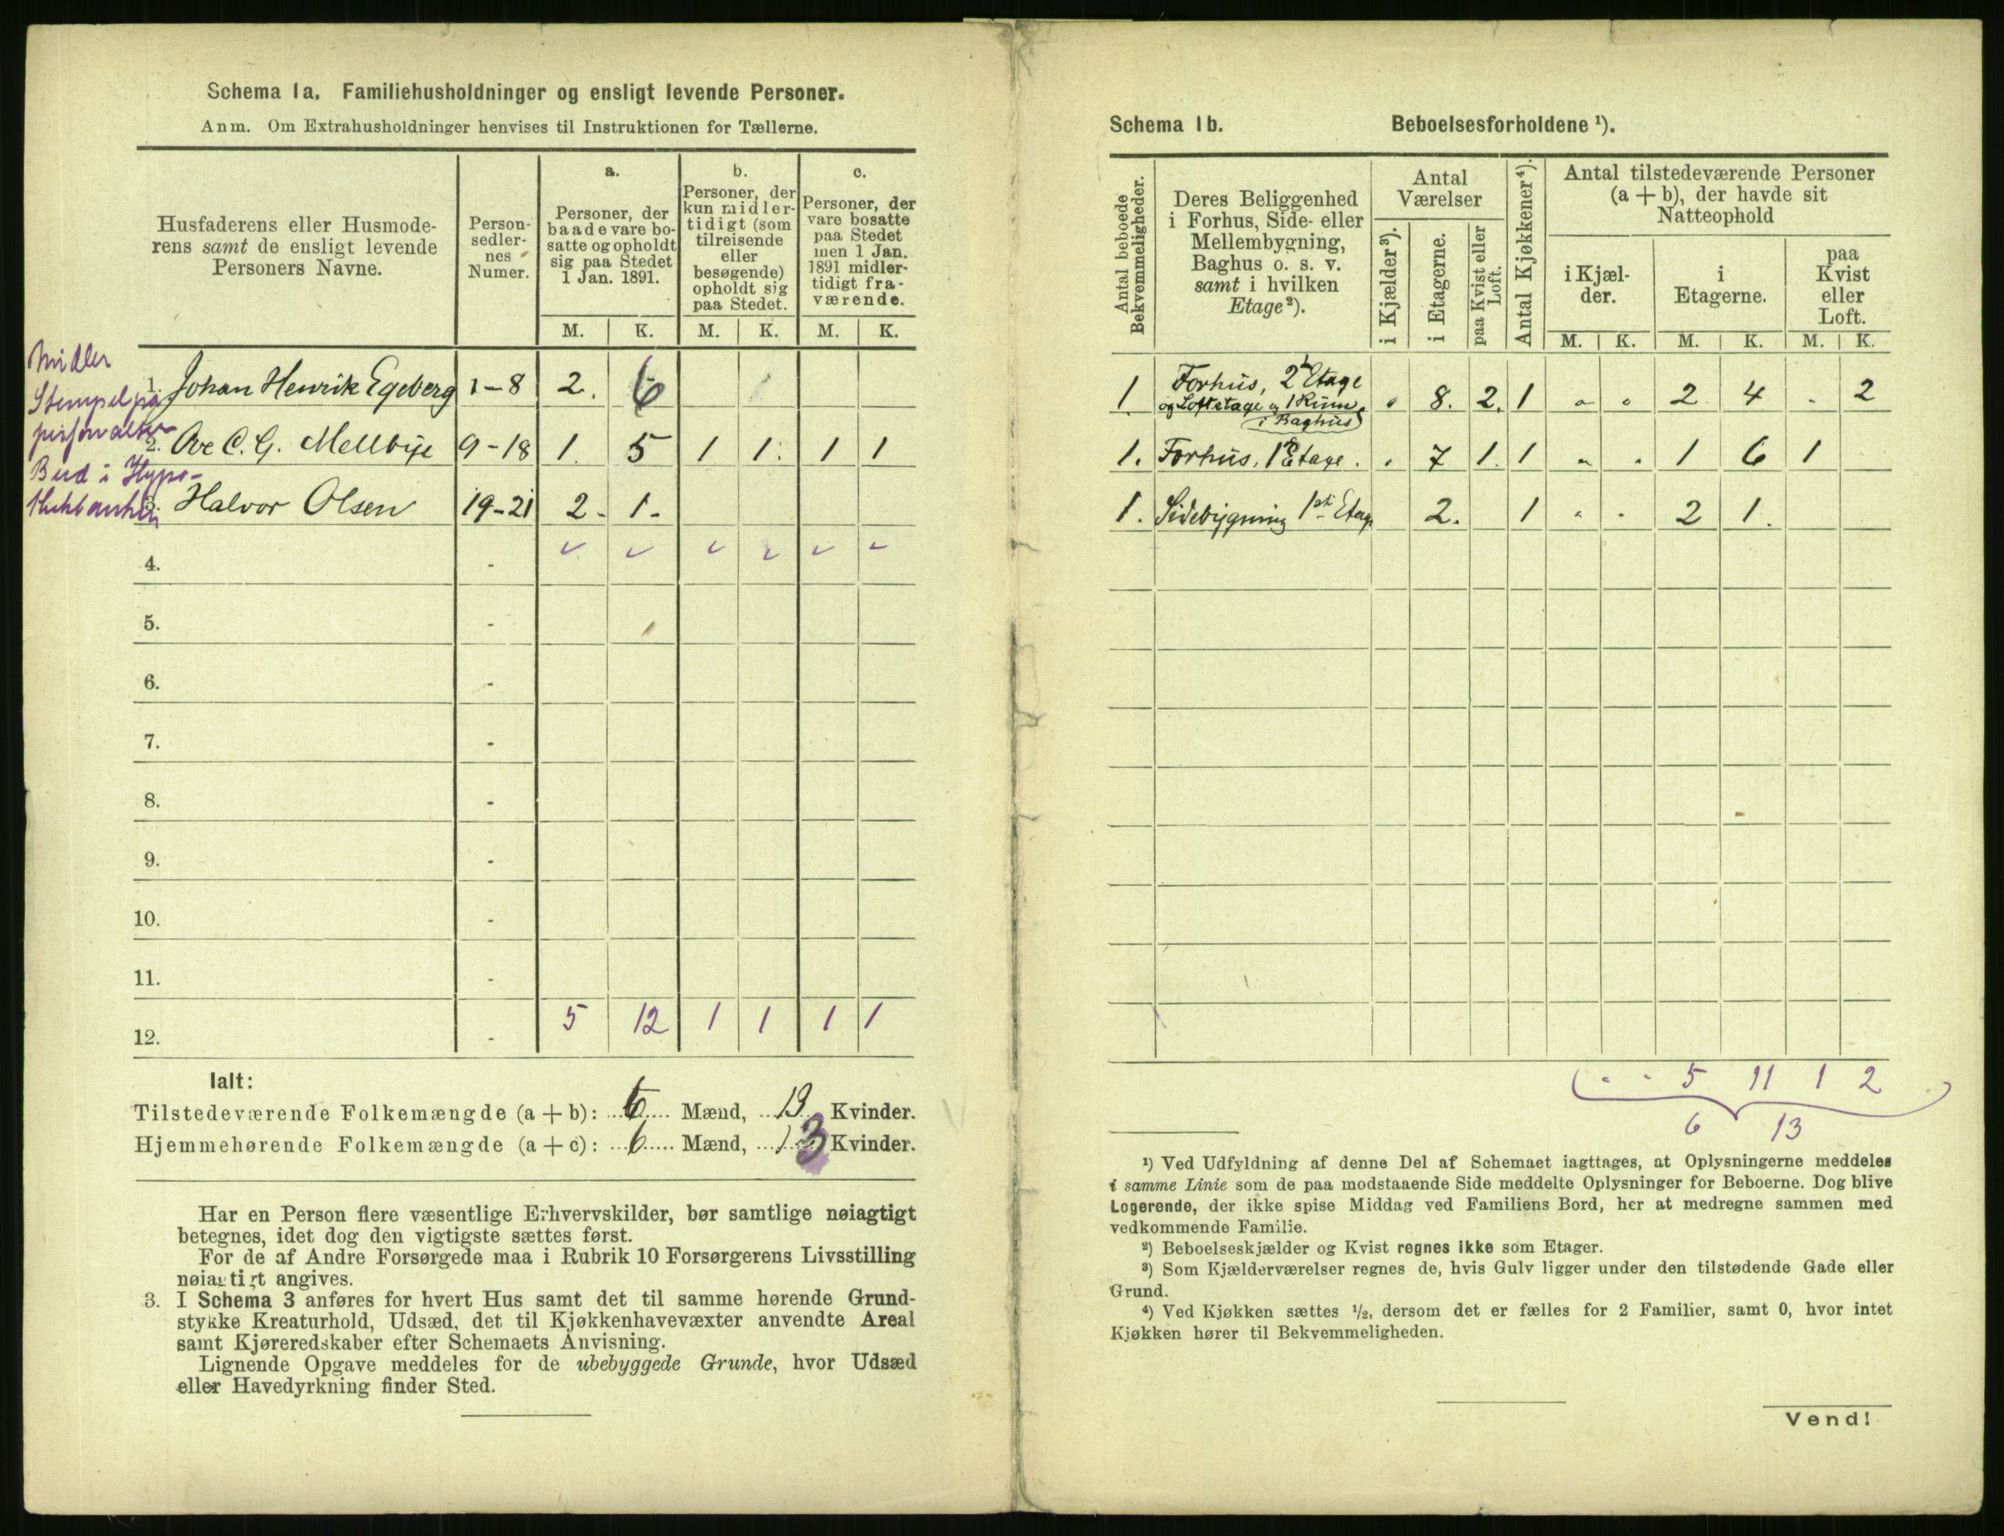 Schema 1a. Familiehusholdninger og ensligt levende Personer.
Anm. Om Extrahusholdninger henvises til Instruktionen for Tællerne.
Husfaderens eller Husmode-
rens samt de ensligt levende
Personers Navne.
Person-
sedler-
nes
Numer.
a.
Personer, der
baade vare bo-
satte og opholdt
sig paa Stedet
1 Jan. 1891.
b.
Personer, der
kun midler-
tidigt (som
tilreisende
eller
besøgende)
opholdt sig
paa Stedet.
c.
Personer, der
vare bosatte
paa Stedet
men 1 Jan.
1891 midler-
tidigt fra-
værende.
M. K. M. K. M. K.
Midler
Stempelpa
pirforvalter
Bud i Hypo-
1. Johan Henrik Egeberg 1-8 2. 6
2. Ove C. G. Mellbye 9-18 1. 5 1 1. 1 1
3. Halvor Olsen 19-21 2- 1-
4. -
5. -
6. -
7. -
8. -
9. -
10. -
11.
5 12 1 1 1 1
12. -
Ialt:
Tilstedeværende Folkemængde (a + b): 6 Mænd, 13 Kvinder.
Hjemmehørende Folkemængde (a + c): 6 Mænd, 13 Kvinder.
Har en Person flere væsentlige Erhvervskilder, bør samtlige nøiagtigt
betegnes, idet dog den vigtigste sættes først.
For de af Andre Forsørgede maa i Rubrik 10 Forsørgerens Livsstilling
nøiagtigt angives.
3. I Schema 3 anføres for hvert Hus samt det til samme hørende Grund-
stykke Kreaturhold, Udsæd, det til Kjøkkenhavevæxter anvendte Areal
samt Kjøreredskaber efter Schemaets Anvisning.
Lignende Opgave meddeles for de ubebyggede Grunde, hvor Udsæd
eller Havedyrkning finder Sted.
Schema 1b. Beboelsesforholdene ¹).
Antal beboede
Bekvemmeligheder.
Deres Beliggenhed
i Forhus, Side- eller
Mellembygning,
Baghus o. s. v.
samt i hvilken
Etage²).
Antal
Værelser
i Kjælder³).
i Etagerne.
paa Kvist eller
Loft.
Antal Kjøkkener⁴).
Antal tilstedeværende Personer
(a + b), der havde sit
Natteophold
i Kjæl-
der.
i
Etagerne.
paa
Kvist
eller
Loft.
M. K. M. K. M. K.
1. Forhus, 2 Etage
og Loftetage og 1 Rum
i Baghus
" 8. 2. 1 " " 2 4 - 2
1. Forhus, 1 Etage. " 7 1. 1 " " 1 6 1
1. Sidebygning 1ste Etage 2. 1 " " 2 1.
" " 5 11 1 2
6 13
¹) Ved Udfyldning af denne Del af Schemaet iagttages, at Oplysningerne meddeles
i samme Linie som de paa modstaaende Side meddelte Oplysninger for Beboerne. Dog blive
Logerende, der ikke spise Middag ved Familiens Bord, her at medregne sammen med
vedkommende Familie.
²) Beboelseskjælder og Kvist regnes ikke som Etager.
³) Som Kjælderværelser regnes de, hvis Gulv ligger under den tilstødende Gade eller
Grund.
⁴) Ved Kjøkken sættes ½, dersom det er fælles for 2 Familier, samt 0, hvor intet
Kjøkken hører til Bekvemmeligheden.
Vend!